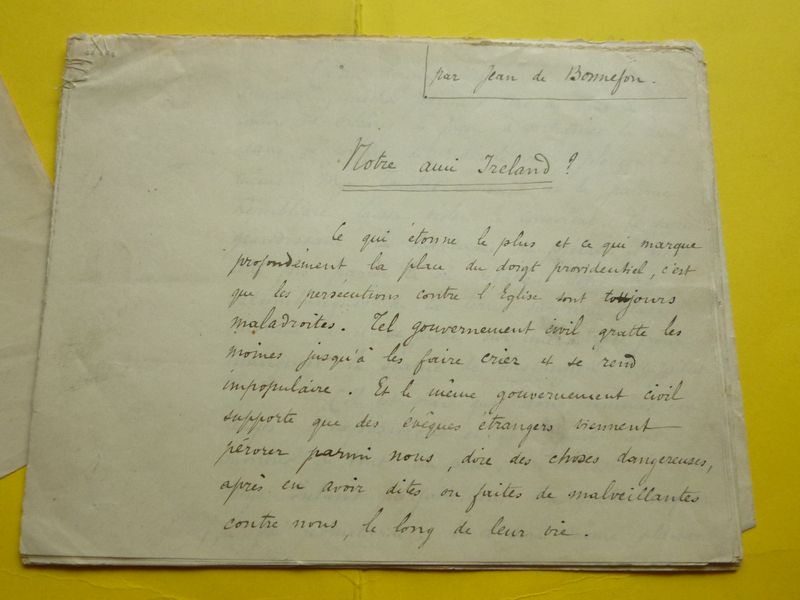 par Jean de Bonnefon.
Notre ami Ireland ?
Ce qui étonne le plus et ce qui marque
profondément la place du doigt providentiel, c'est
que les persécutions contre l'Eglise sont toujours
maladroites. Tel gouvernement civil gratte les
moines jusqu'à les faire crier et se rend
impopulaire. Et le même gouvernement civil
supporte que des évêques étrangers viennent
pérorer parmi nous, dire des choses dangereuses,
après en avoir dites ou faites de malveillantes
contre nous, le long de leur vie.